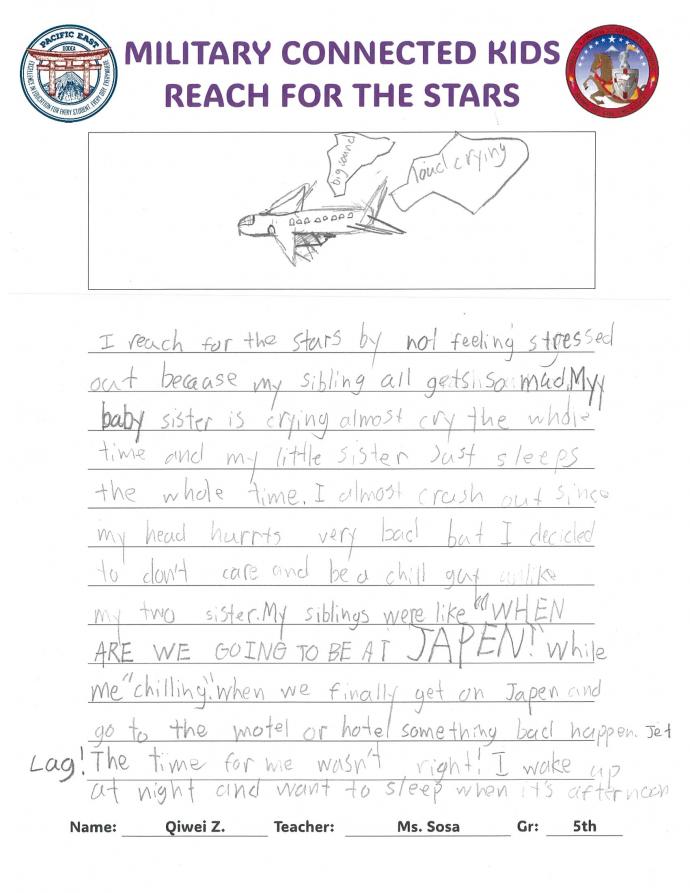 PACIFIC EAST
DODEA
EXCELLENCE IN EDUCATION FOR EVERY STUDENT, EVERY DAY, EVERYWHERE
MILITARY CONNECTED KIDS
REACH FOR THE STARS
big sound
loud crying
I reach for the stars by not feeling stressed
out because my sibling all gets so mad. My
baby sister is crying almost cry the whole
time and my little sister Just sleeps
the whole time. I almost crash out since
my head hurrts very bad but I decided
to don't care and be a chill guy unlike
my two sister. My siblings were like "WHEN
ARE WE GOING TO BE AT JAPEN!" While
me "chilling". when we finally get on Japen and
go to the motel or hotel something bad happen. Jet
Lag! The time for me wasn't right! I wake up
at night and want to sleep when it's afternoon
Name: Qiwei Z. Teacher: Ms. Sosa Gr: 5th